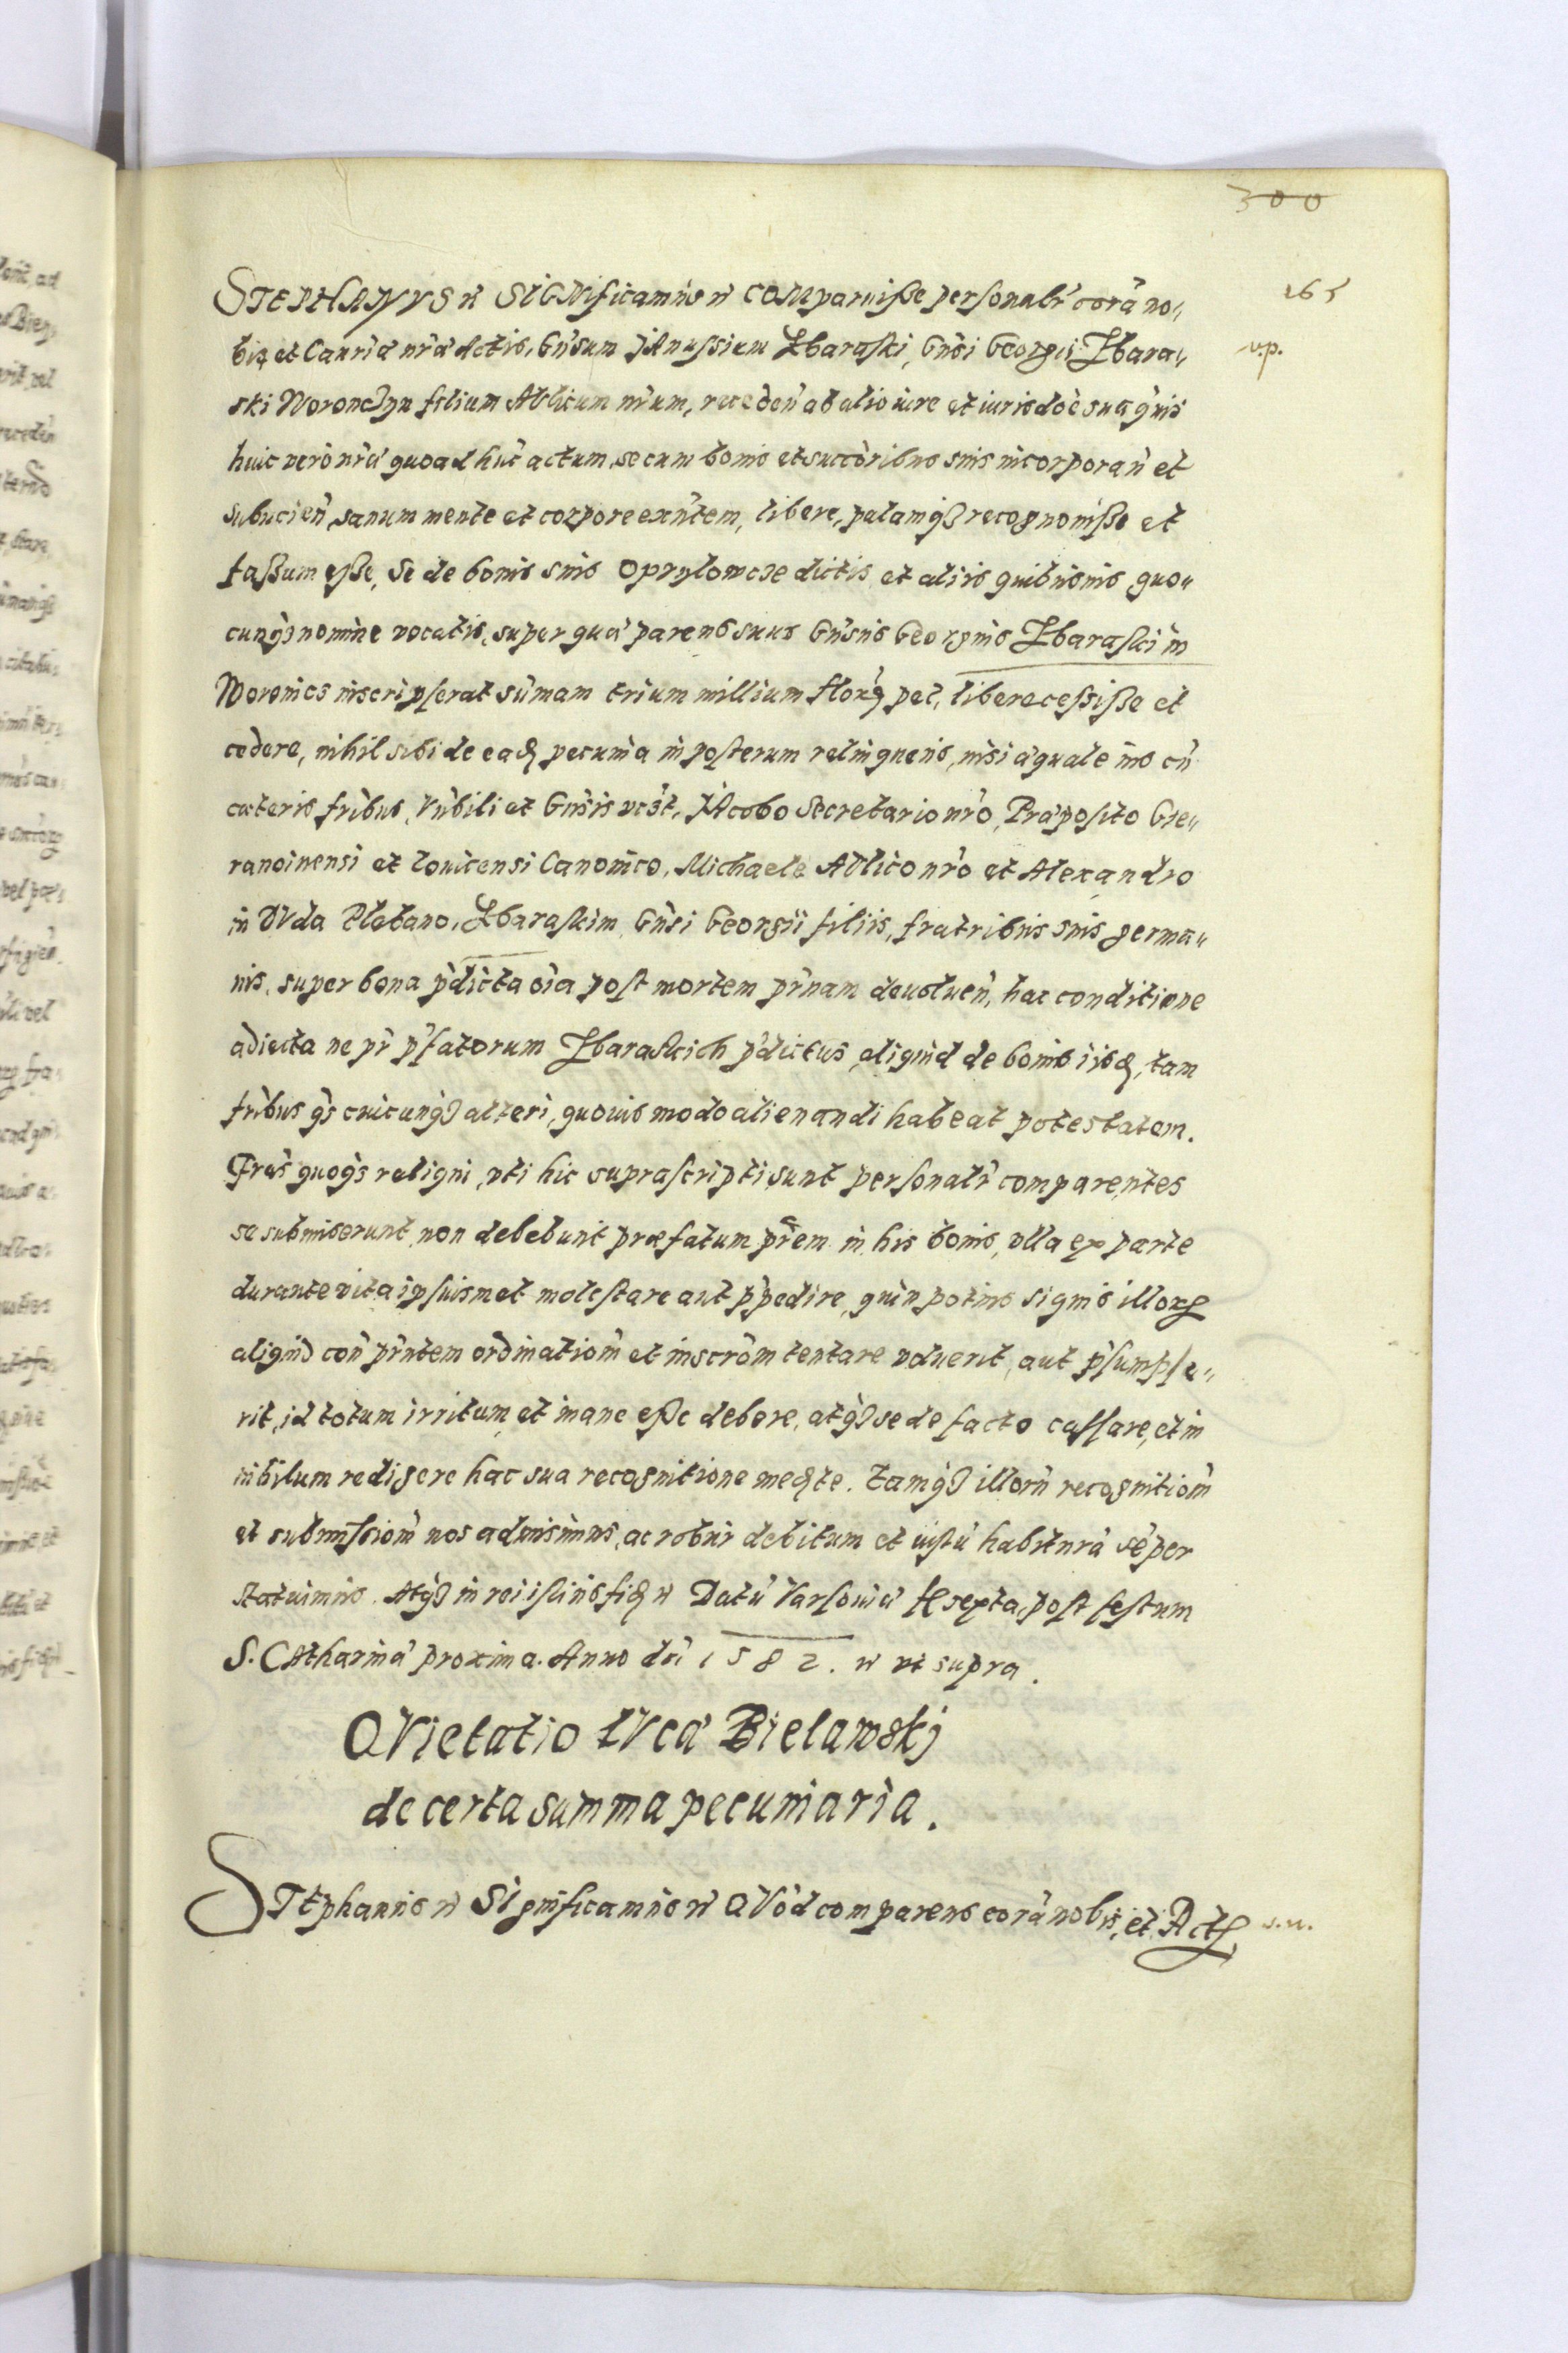 300
165
STEPHANVS etc SIGNificamus etc COMparuisse personalr corā no„
bis et Canr̄ia nr̄a actis, Gn̄sum JAnussium Zbaraski, Gn̄si Georgii Zbara„
v.p.
ski Woronczyn filium AVlicum nr̄um, receden̄ ab alio iure et iurisdōe sua q̄uis
huic vero nr̄a quoad hūc actum, se cum bonis et succōribus suis incorporan̄ et
subiicien̄, sanum mente et corpore exn̄tem, libere, palamq3 recognouisse et
fassum esse, Se de bonis suis Oprylowcze dictis et aliis quibusuis quo„
cunq3 nomine vocatis, super quā parens suus Gn̄sus Georgius Zbaraski in
Woronies inscripserat sūmam trium millium flor pec, libere cessisse et
cedere, nihil sibi de ead pecunia in posterum relinquens, nisi aequale ius cū
caeteris frībus, Vn̄bili et Gn̄sis vcz̄t, JAcobo Secretario nr̄o, Praeposito Gie„
ranoinensi et Louicensi Canonico, Michaele AVlico nr̄o et Alexandro
in DVda Plebano, Zbaraskim, Gn̄si Georgii filiis, fratribus suis germa„
nis, super bona p̄dicta oīa post mortem pr̄nam deuoluen̄, hac conditione
adiecta ne pr̄ p̄fatorum Zbaraskich p̄dictus, aliquid de bonis iisd, tam
frībus q̄3 cuicunq3 alteri, quouis modo alienandi habeat potestatem.
Frēs quoq3 reliqui, vti hic suprascripti sunt personalr̄ comparentes
se submiserunt, non debebunt praefatum pr̄em in his bonis, vlla ex parte
durante vita ipsiusmet molestare aut p̄pedire, quin potius si quis illor
aliquid con̄ pn̄tem ordinatiōm et inscrōm tentare voluerit, aut p̄sumpse„
rit, id totum irritum et inane esse debere, atq3 se de facto cassare, et in
nihilum redigere hac sua recognitione med̄te. Tamq3 illorū recognitiōm
et submissiōm nos admisimus, ac robur debitum et iustū habiturā sēper
statuimus. Atq3 in rei istius fid etc Datū Varsouiae fe sexta, post festum
S. CAtharinae proxima. Anno dn̄i 1582. etc vt supra.
QVietatio LVcae Bielawskj
de certa summa pecuniaria.
STEphanus etc Significamus etc QVod comparens corā nobis, et Act
s.u.